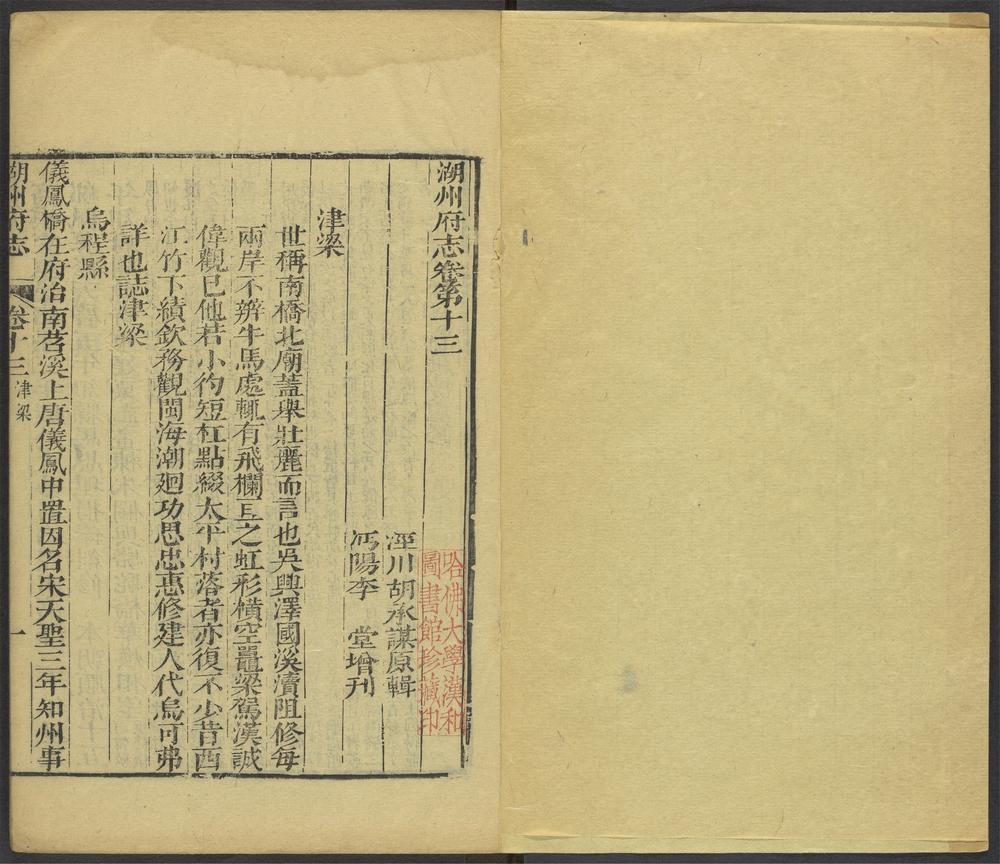 湖州府志卷第十三
涇川胡承謀原輯
沔陽李　堂增刊
津梁
世稱南橋北廟蓋舉壯麗而言也吳興澤國溪瀆阻修每
兩岸不辨牛馬處輒有飛欄亙之虹形橫空鼉梁駕漢誠
偉觀已他若小彴短杠點綴太平村落者亦復不少昔西
江竹下績欽務觀閩海潮廻功思忠惠修建人代烏可弗
詳也誌津梁
烏程縣
儀鳳橋在府治南苕溪上唐儀鳳中置因名宋天聖三年知州事
湖州府志　卷十三津梁　一
哈佛大學漢和
圖書館珍藏印